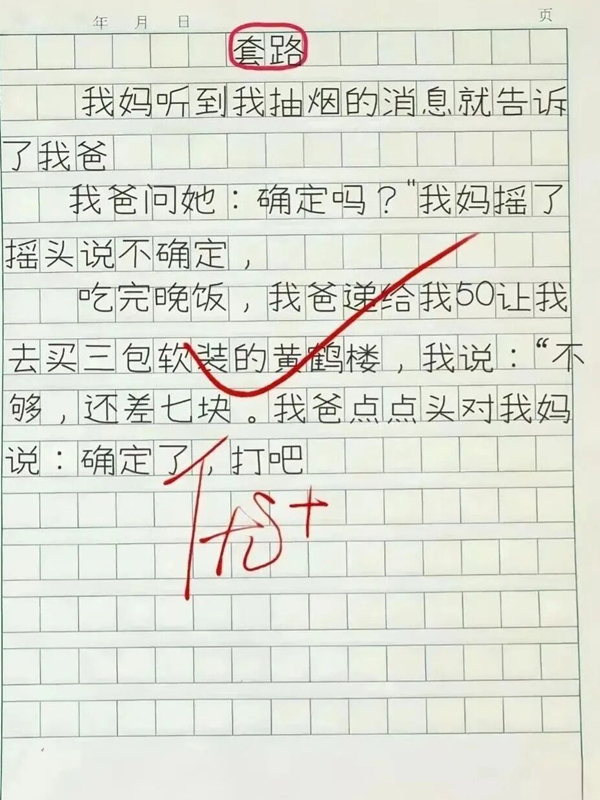 年 月 日 页
套路
我妈听到我抽烟的消息就告诉
了我爸
我爸问她：确定吗？"我妈摇了
摇头说不确定，
吃完晚饭，我爸递给我50让我
去买三包软装的黄鹤楼，我说：“不
够，还差七块。我爸点点头对我妈
说：确定了，打吧